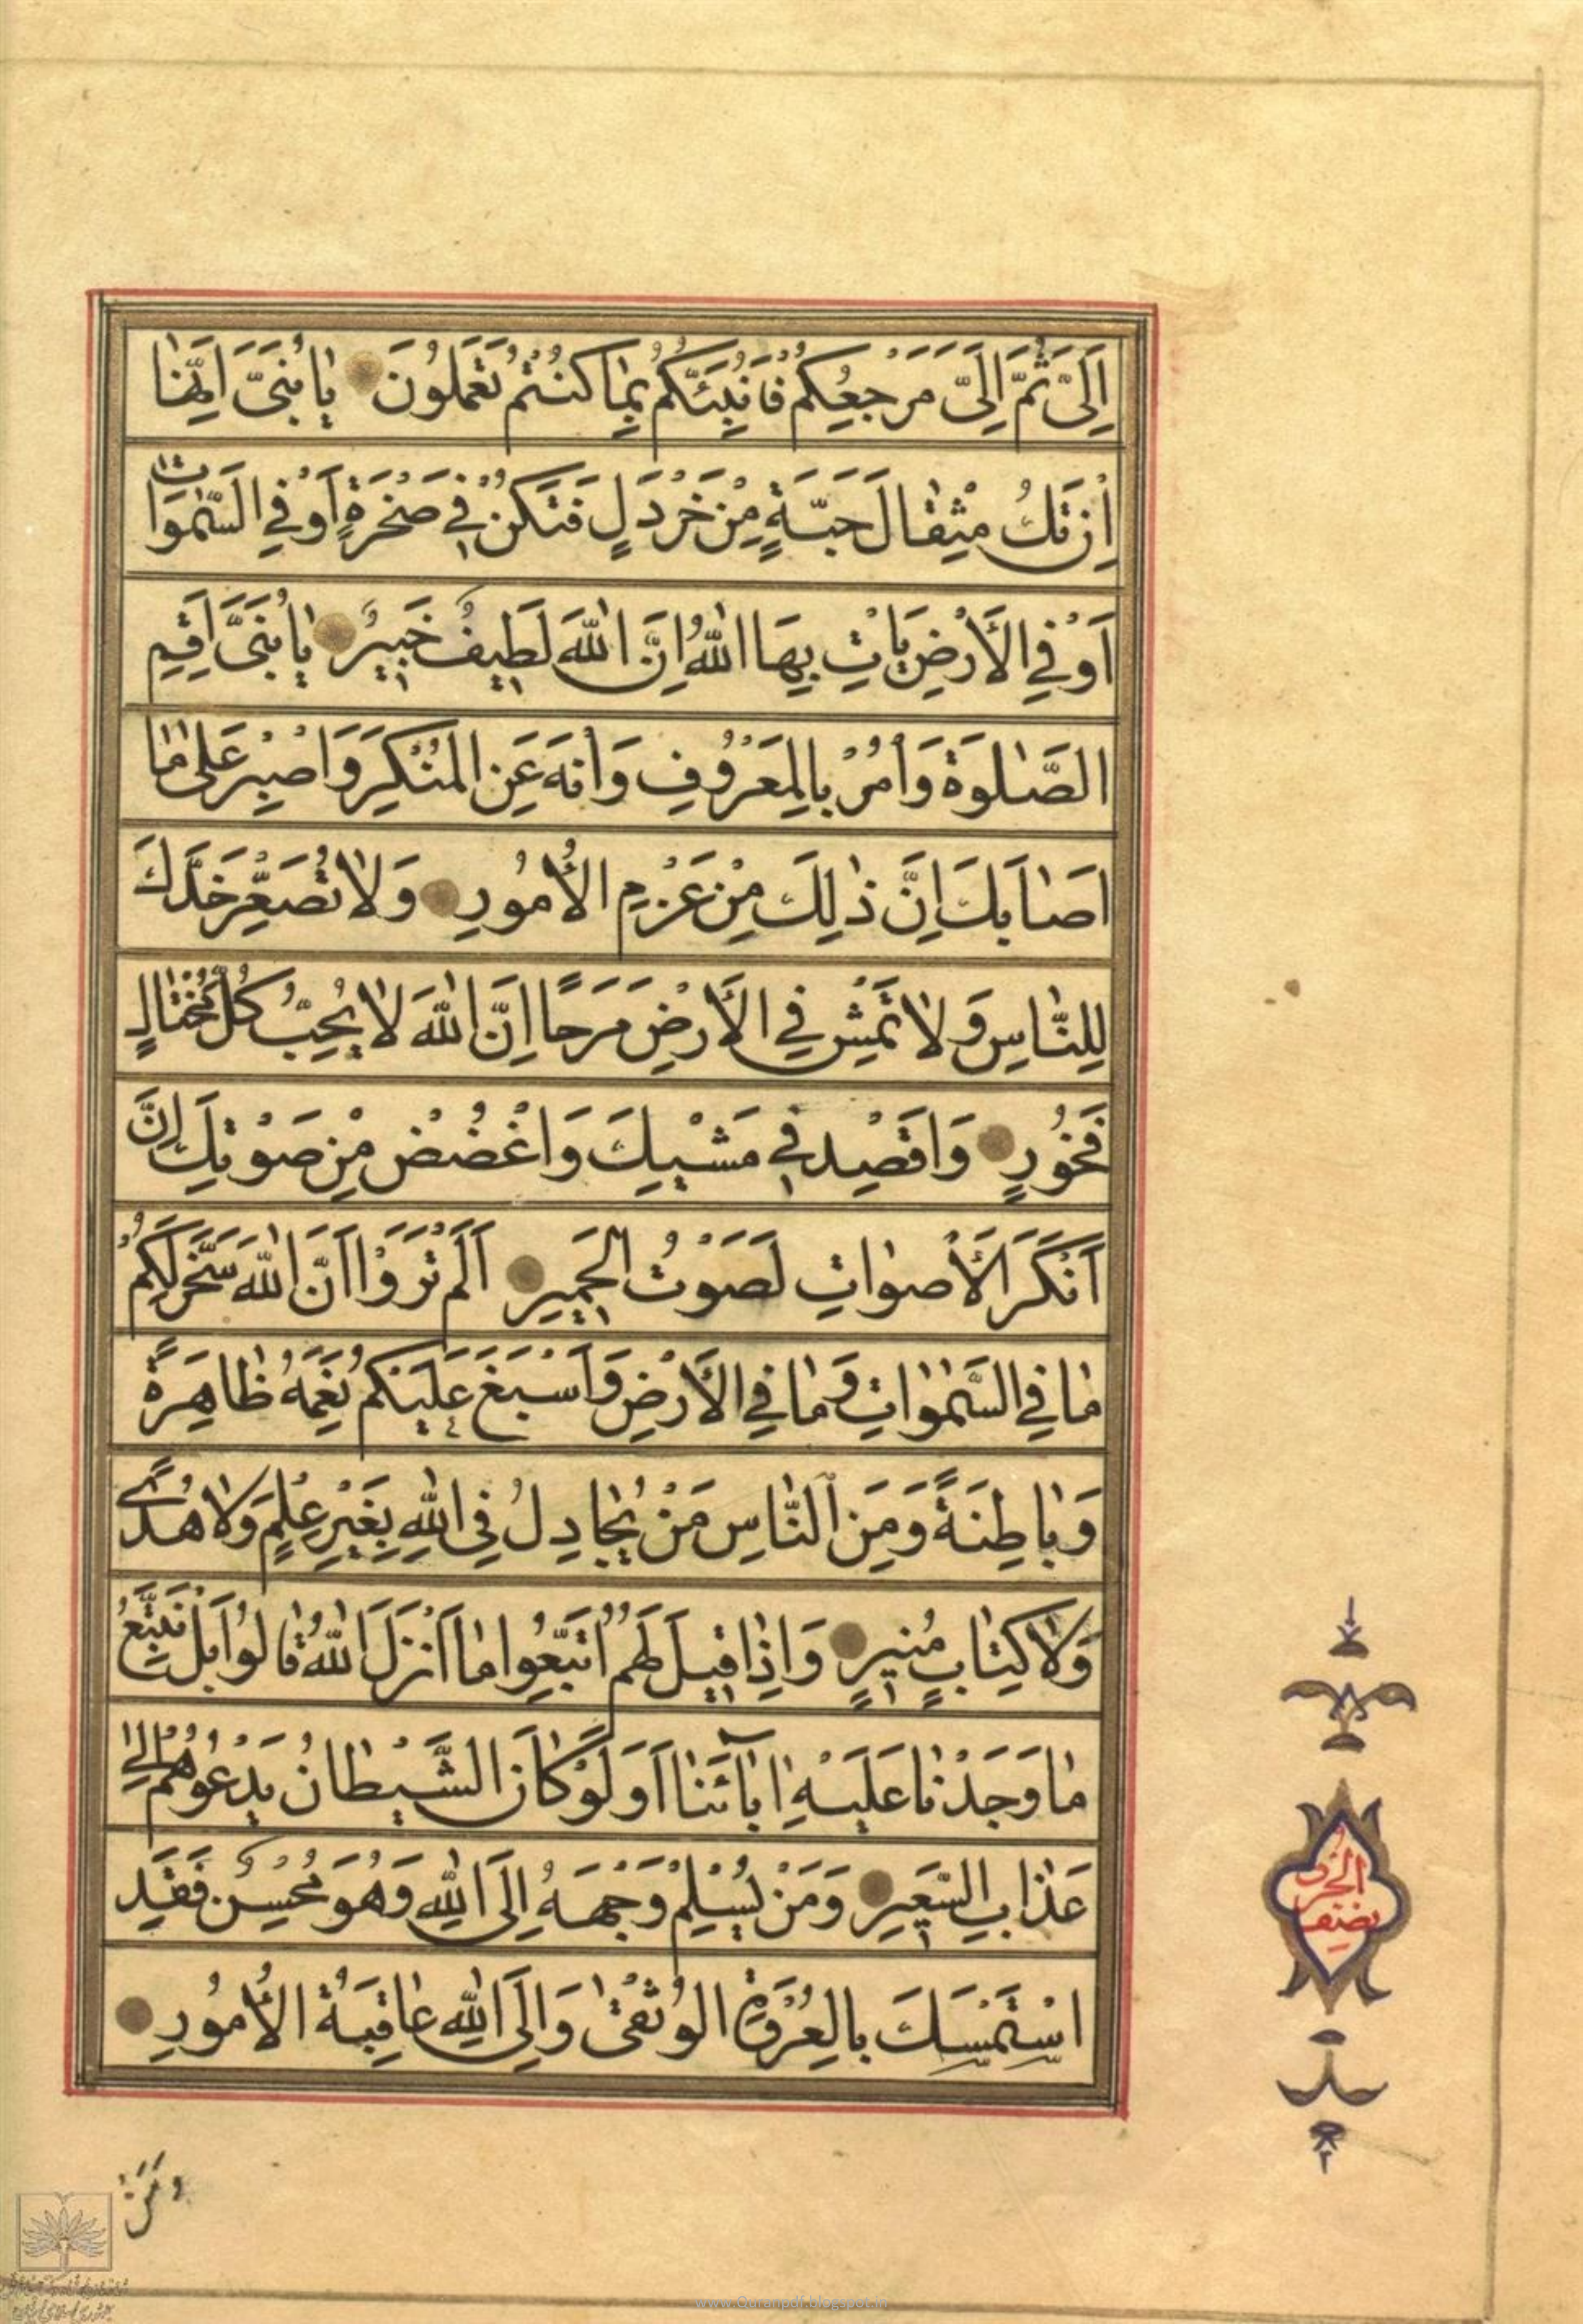 اِلَىَّ ثُمَّ اِلَىَّ مَرْجِعُكُمْ فَاُنَبِّئُكُمْ بِمٰا كُنْتُمْ تَعْمَلُونَ يٰا بُنَىَّ اِنَّهٰا
اِنْ تَكُ مِثْقٰالَ حَبَّةٍ مِنْ خَرْدَلٍ فَتَكُنْ فِي صَخْرَةٍ اَوْ فِي السَّمٰوَاتِ
اَوْ فِي الْأَرْضِ يَأْتِ بِهَا اللّٰهُ اِنَّ اللّٰهَ لَطِيفٌ خَبِيرٌ يٰا بُنَىَّ اَقِمِ
الصَّلٰوةَ وَأْمُرْ بِالْمَعْرُوفِ وَانْهَ عَنِ الْمُنْكَرِ وَاصْبِرْ عَلىٰ مٰا
اَصٰابَكَ اِنَّ ذٰلِكَ مِنْ عَزْمِ الْأُمُورِ وَلٰا تُصَعِّرْ خَدَّكَ
لِلنّٰاسِ وَلٰا تَمْشِ فِي الْأَرْضِ مَرَحًا اِنَّ اللّٰهَ لٰا يُحِبُّ كُلَّ مُخْتٰالٍ
فَخُورٍ وَاقْصِدْ فِي مَشْيِكَ وَاغْضُضْ مِنْ صَوْتِكَ اِنَّ
اَنْكَرَ الْأَصْوٰاتِ لَصَوْتُ الْحَمِيرِ اَلَمْ تَرَوْا اَنَّ اللّٰهَ سَخَّرَ لَكُمْ
مٰا فِي السَّمٰوٰاتِ وَمٰا فِي الْأَرْضِ وَاَسْبَغَ عَلَيْكُمْ نِعَمَهُ ظٰاهِرَةً
وَبٰاطِنَةً وَمِنَ النّٰاسِ مَنْ يُجٰادِلُ فِي اللّٰهِ بِغَيْرِ عِلْمٍ وَلٰا هُدًى
وَلٰا كِتٰابٍ مُنِيرٍ وَاِذٰا قِيلَ لَهُمُ اتَّبِعُوا مٰا اَنْزَلَ اللّٰهُ قٰالُوا بَلْ نَتَّبِعُ
مٰا وَجَدْنٰا عَلَيْهِ اٰبٰآئَنٰا اَوَلَوْ كٰانَ الشَّيْطٰانُ يَدْعُوهُمْ اِلىٰ
عَذٰابِ السَّعِيرِ وَمَنْ يُسْلِمْ وَجْهَهُ اِلَى اللّٰهِ وَهُوَ مُحْسِنٌ فَقَدِ
اسْتَمْسَكَ بِالْعُرْوَةِ الْوُثْقىٰ وَاِلَى اللّٰهِ عٰاقِبَةُ الْأُمُورِ
نصف
الحزب
وَمَنْ
www.Quranpdf.blogspot.in